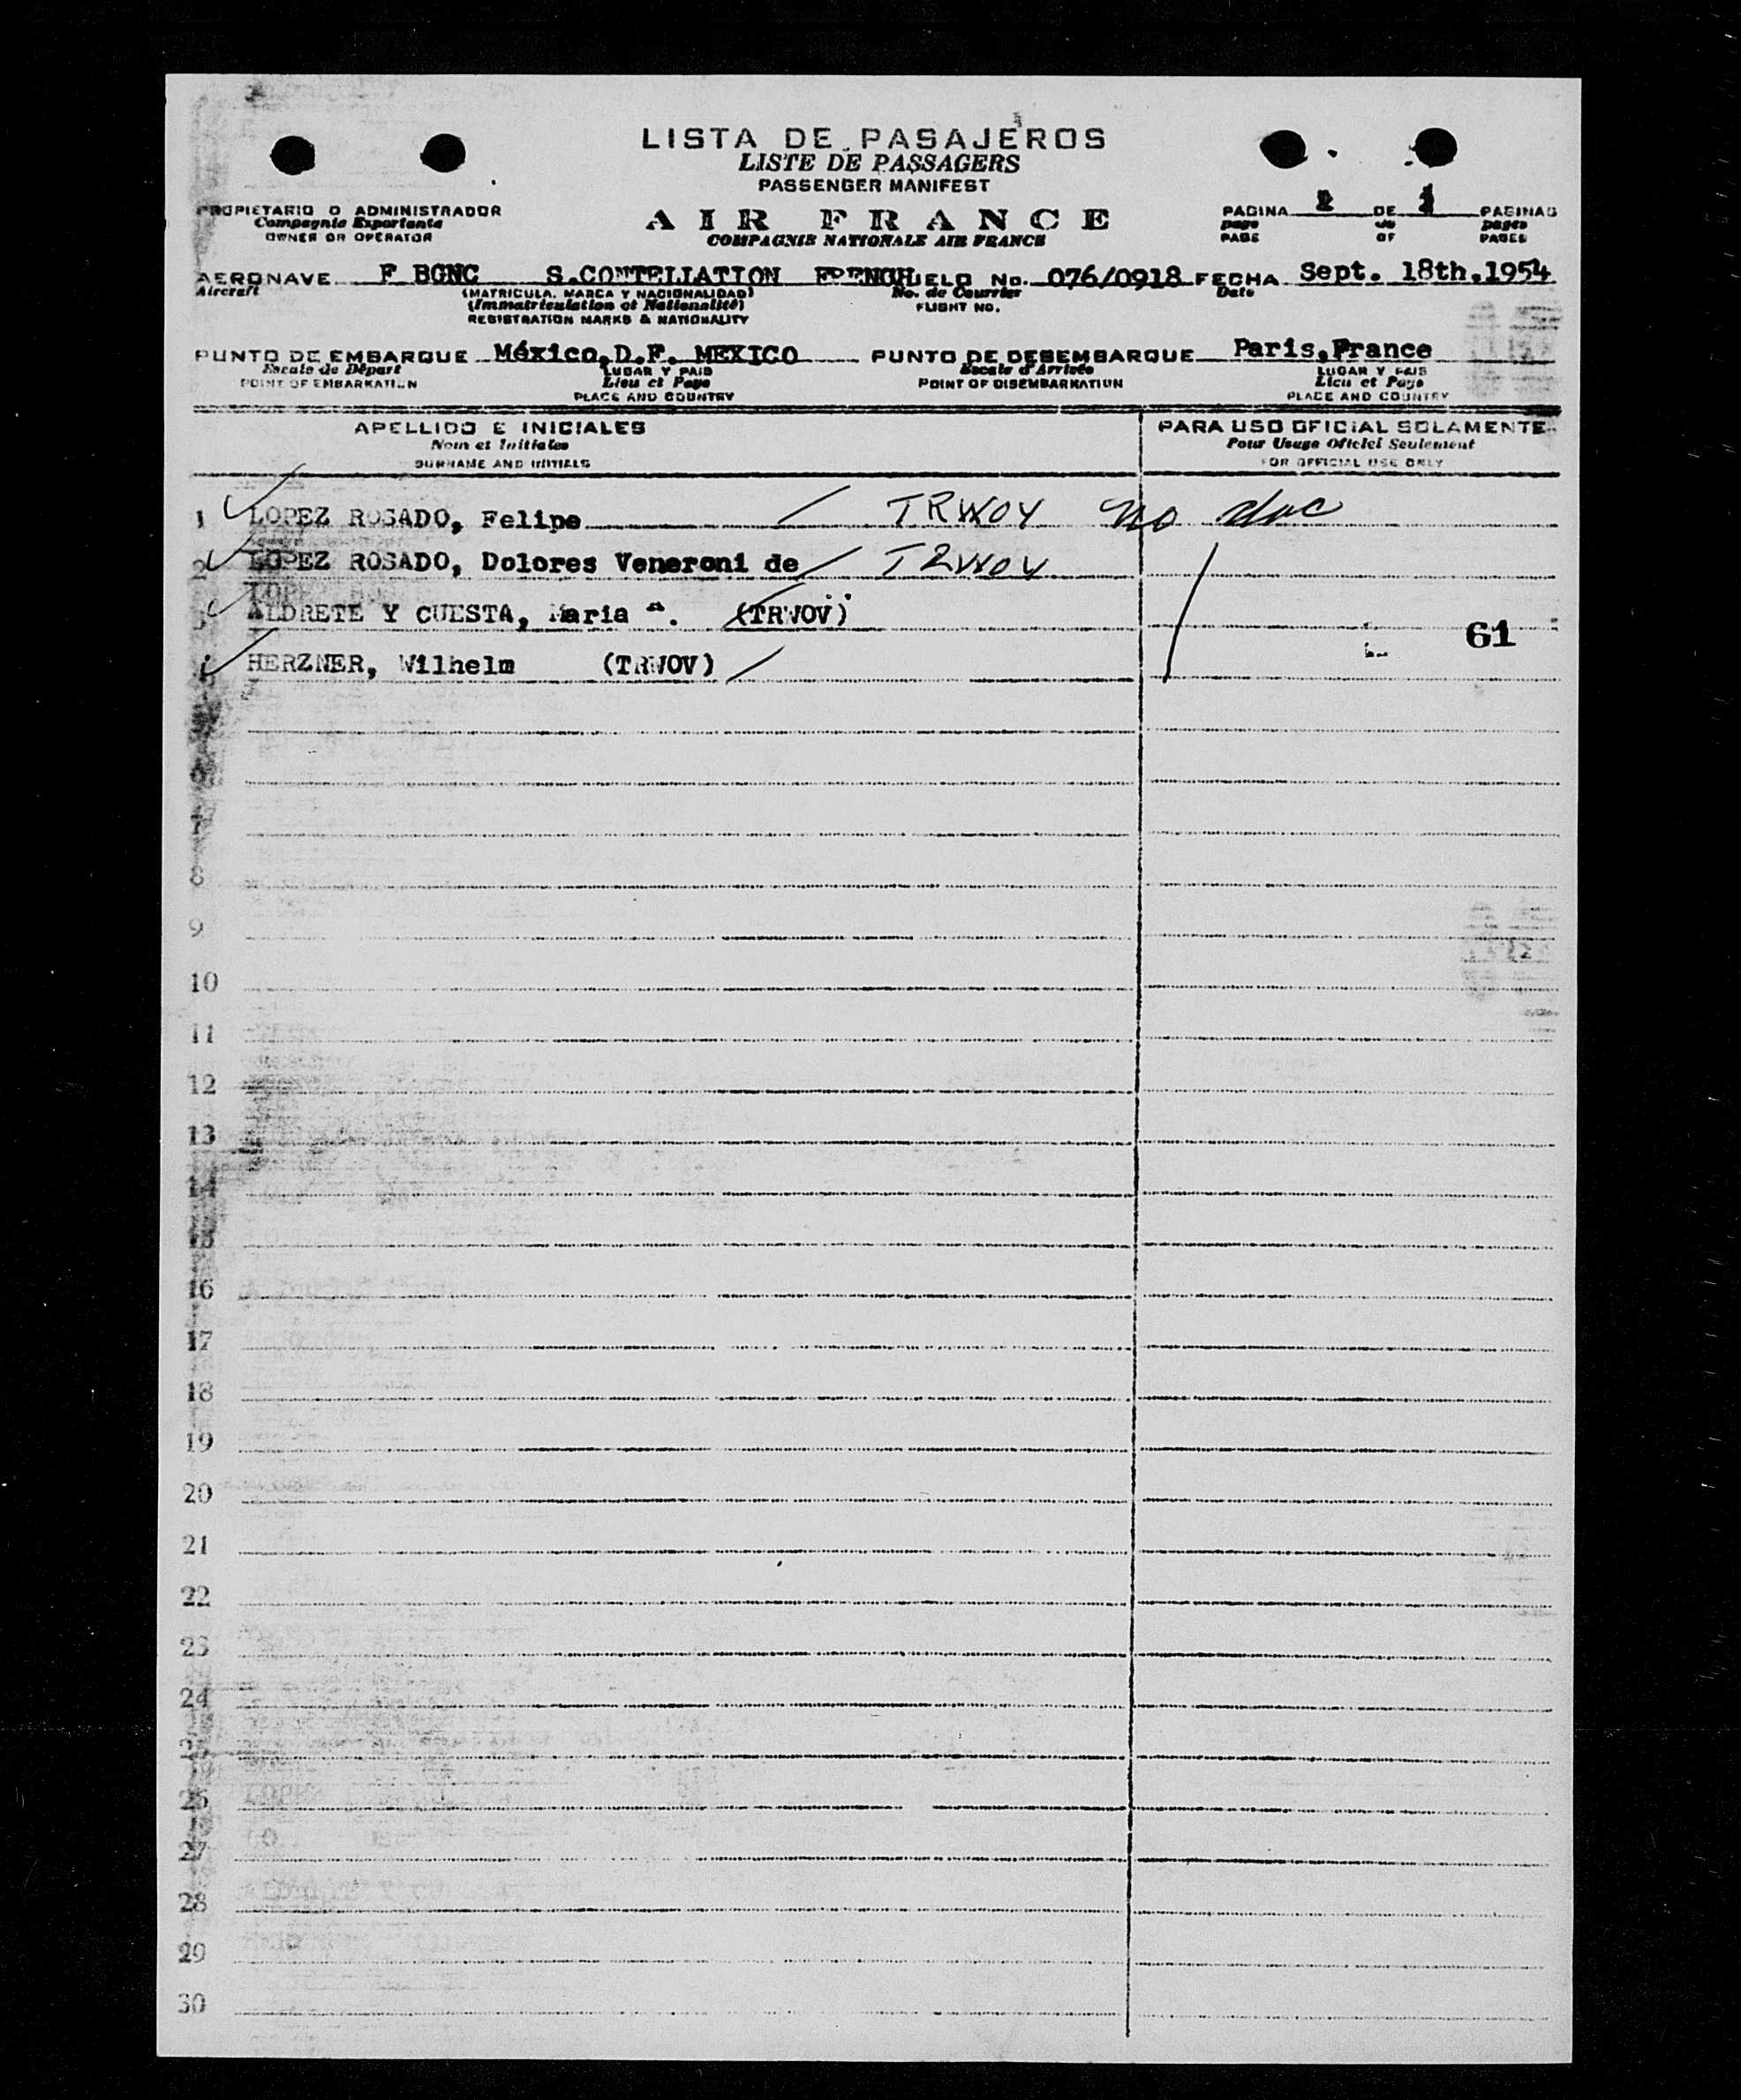 LISTA DE PASAJEROS
LISTE DE PASSAGERS
PASSENGER MANIFEST
PROPIETARIO O ADMINISTRADOR
Compagnie Exportante
OWNER OR OPERATOR
AIR FRANCE
COMPAGNIE NATIONALE AIR FRANCE
PAGINA 2 DE 1 PAGINAS
page de pages
PAGE OF PAGES
AERONAVE F BGNC S.CONTELLATION FRENCH UELO No. 076/0918 FECHA Sept. 18th,1954
Aircraft (MATRICULA, MARCA Y NACIONALIDAD) No. de Courrier Date
(Immatriculation et Nationalité) FLIGHT NO.
REGISTRATION MARKS & NATIONALITY
PUNTO DE EMBARQUE México,D.F. MEXICO PUNTO DE DESEMBARQUE Paris,France
Escale de Départ LUGAR Y PAIS Escale d'Arrivée LUGAR Y PAIS
POINT OF EMBARKATION Lieu et Pays POINT OF DISEMBARKATION Lieu et Pays
PLACE AND COUNTRY PLACE AND COUNTRY
APELLIDO E INICIALES PARA USO OFICIAL SOLAMENTE
Nom et Initiales Pour Usage Officiel Seulement
SURNAME AND INITIALS FOR OFFICIAL USE ONLY
1 LOPEZ ROSADO, Felipe TRWOV no doc
2 LOPEZ ROSADO, Dolores Veneroni de TRWOV
3 ALDRETE Y CUESTA, Maria (TRWOV)
61
4 HERZNER, Wilhelm (TRWOV)
6
7
8
9
10
11
12
13
14
15
16
17
18
19
20
21
22
23
24
25
26
27
28
29
30